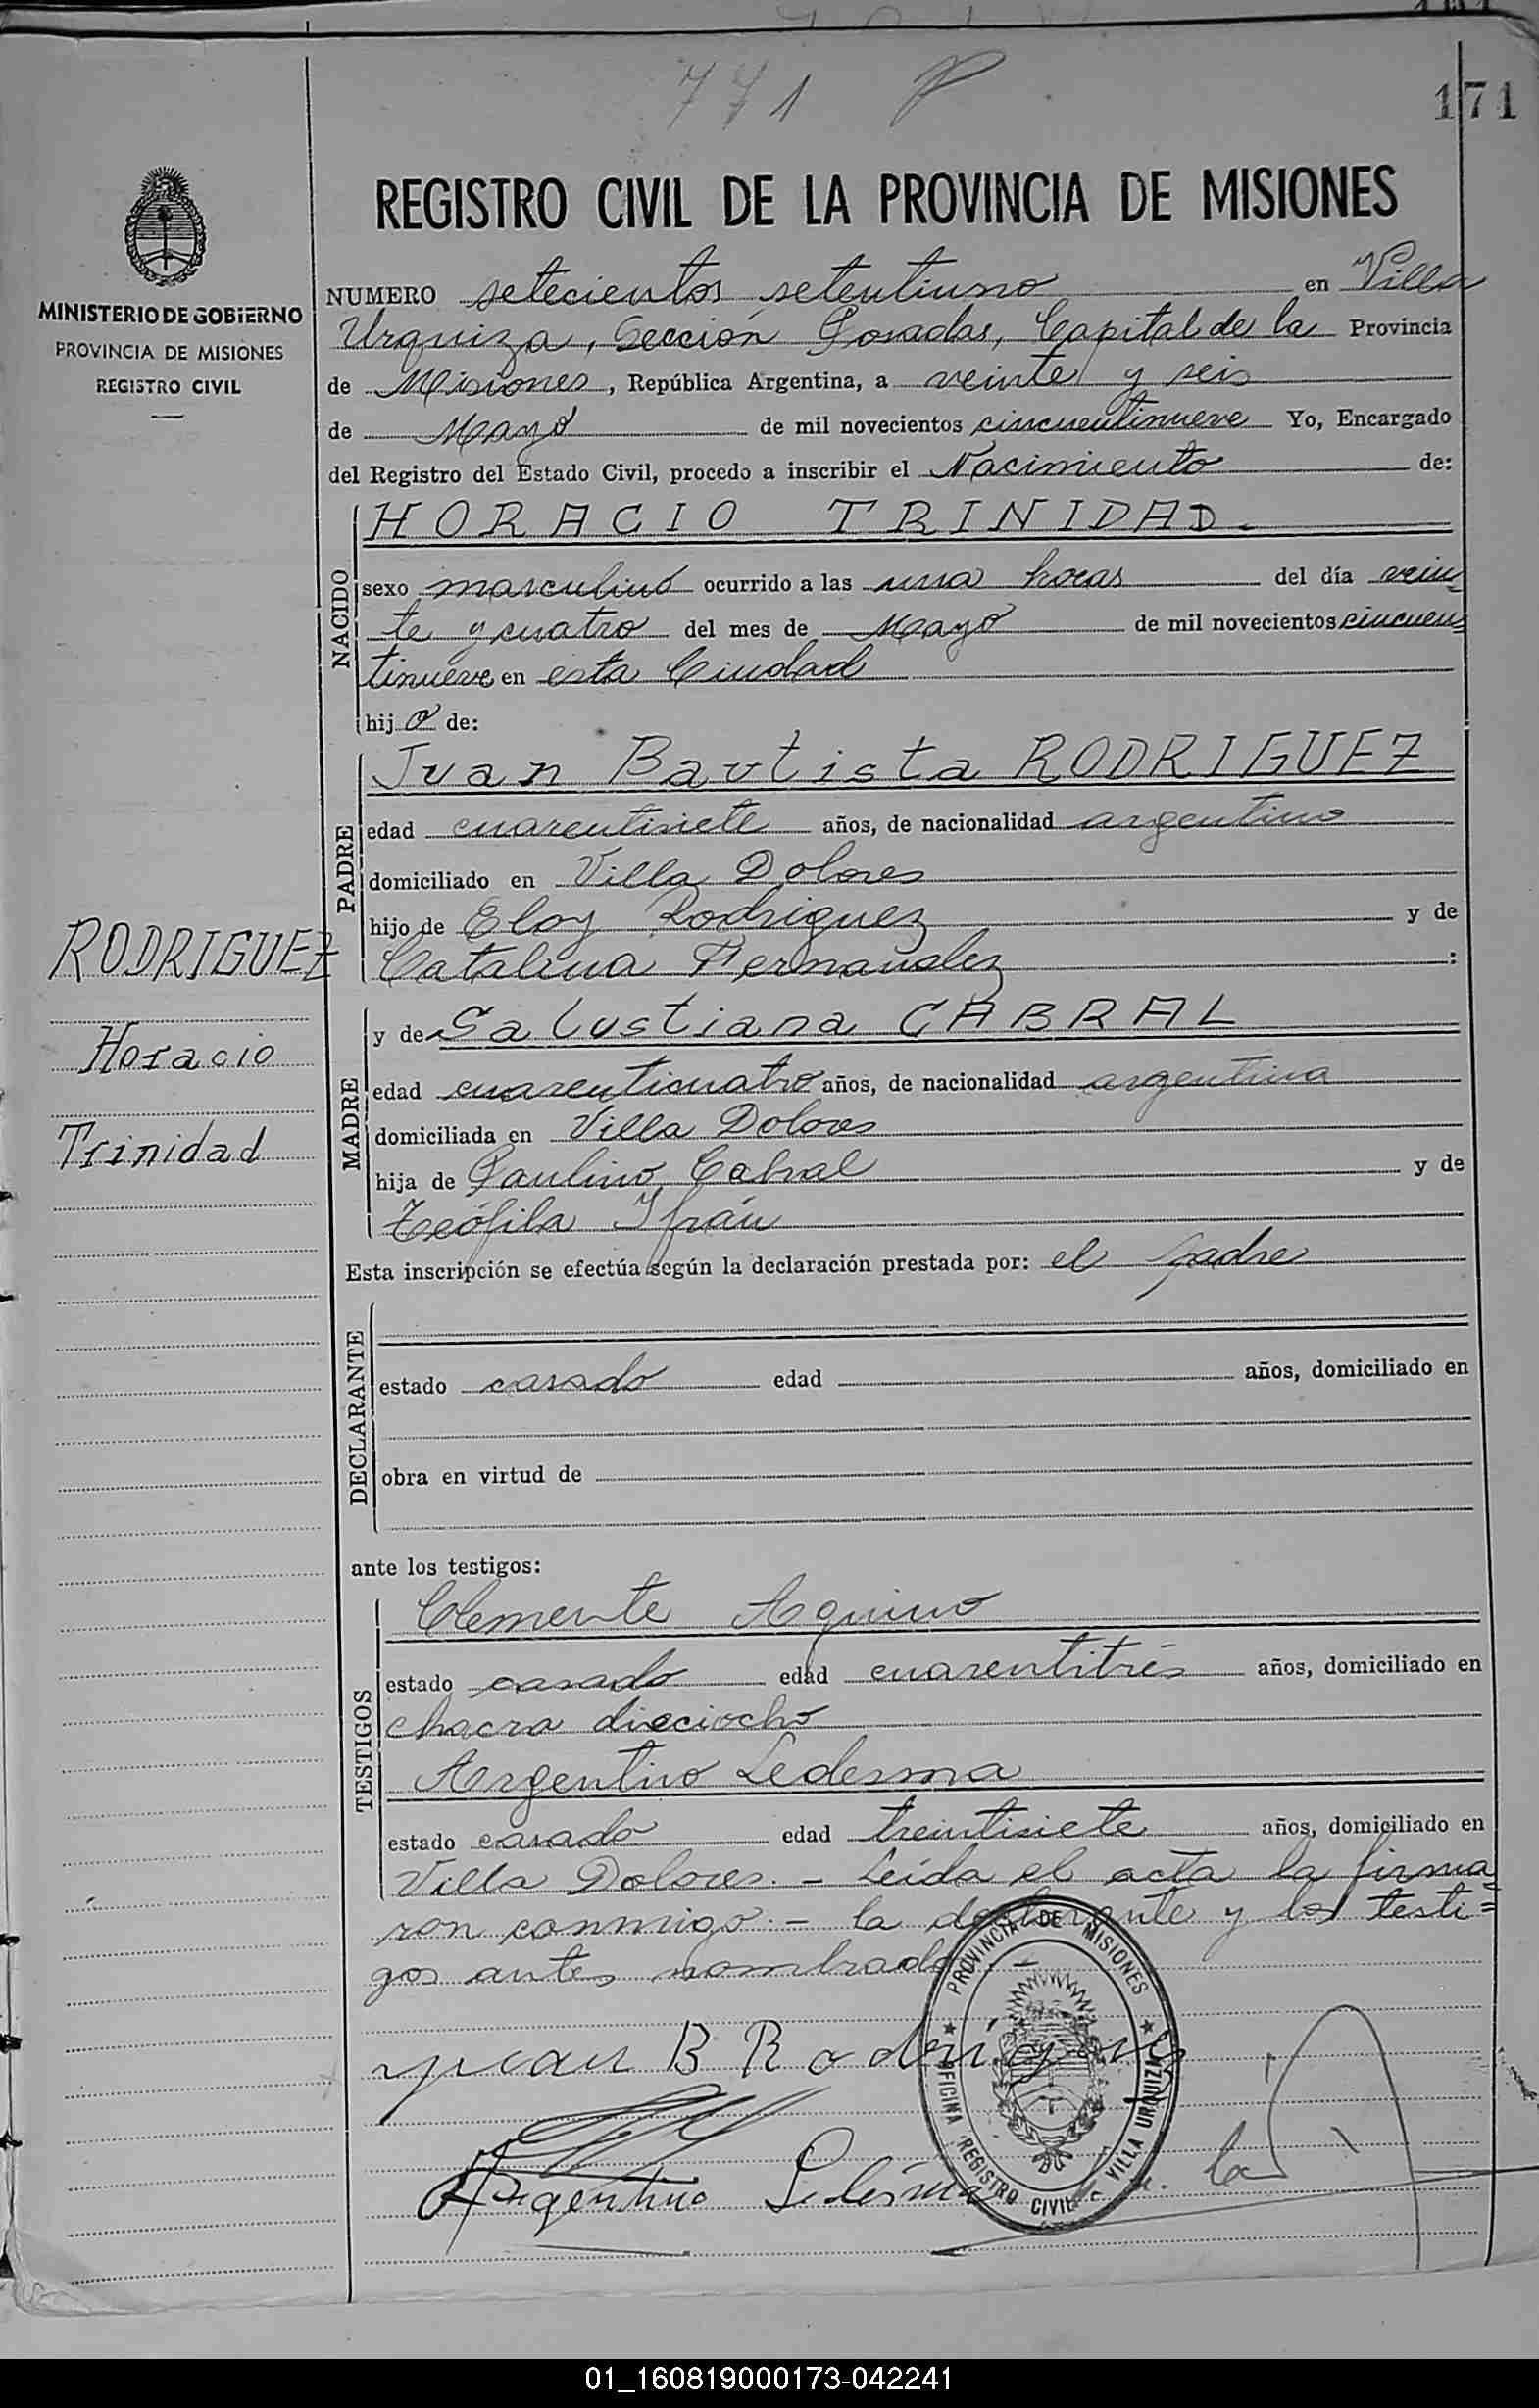 771
171
MINISTERIO DE GOBIERNO
PROVINCIA DE MISIONES
REGISTRO CIVIL
REGISTRO CIVIL DE LA PROVINCIA DE MISIONES
NUMERO setecientos setentiuno en Villa
Urquiza, Sección Posadas, Capital de la Provincia
de Misiones, República Argentina, a veinte y seis
de Mayo de mil novecientos cincuentinueve Yo, Encargado
del Registro del Estado Civil, procedo a inscribir el Nacimiento de:
NACIDO
HORACIO TRINIDAD.
sexo masculino ocurrido a las una horas del día vein
te y cuatro del mes de Mayo de mil novecientos cincuen
tinueve en esta Ciudad
hijo de:
PADRE
Juan Bautista RODRIGUEZ
edad cuarentisiete años, de nacionalidad argentino
domiciliado en Villa Dolores
hijo de Eloy Rodriguez y de
Catalina Fernandez :
RODRIGUEZ
Horacio
Trinidad
MADRE
y de Salustiana CABRAL
edad cuarenticuatro años, de nacionalidad argentina
domiciliada en Villa Dolores
hija de Paulino Cabral y de
Teófila Ifrán
Esta inscripción se efectúa según la declaración prestada por: el padre
DECLARANTE
estado casado edad años, domiciliado en
obra en virtud de
ante los testigos:
TESTIGOS
Clemente Aquino
estado casado edad cuarentitrés años, domiciliado en
chacra dieciocho
Argentino Ledesma
estado casado edad treintisiete años, domiciliado en
Villa Dolores. - Leída el acta la firma
ron conmigo.- la declarante y los testi=
gos antes nombrados.-
juan B Rodriguez
Argentino Ledesma
PROVINCIA DE MISIONES
OFICINA REGISTRO CIVIL VILLA URQUIZA
01_160819000173-042241